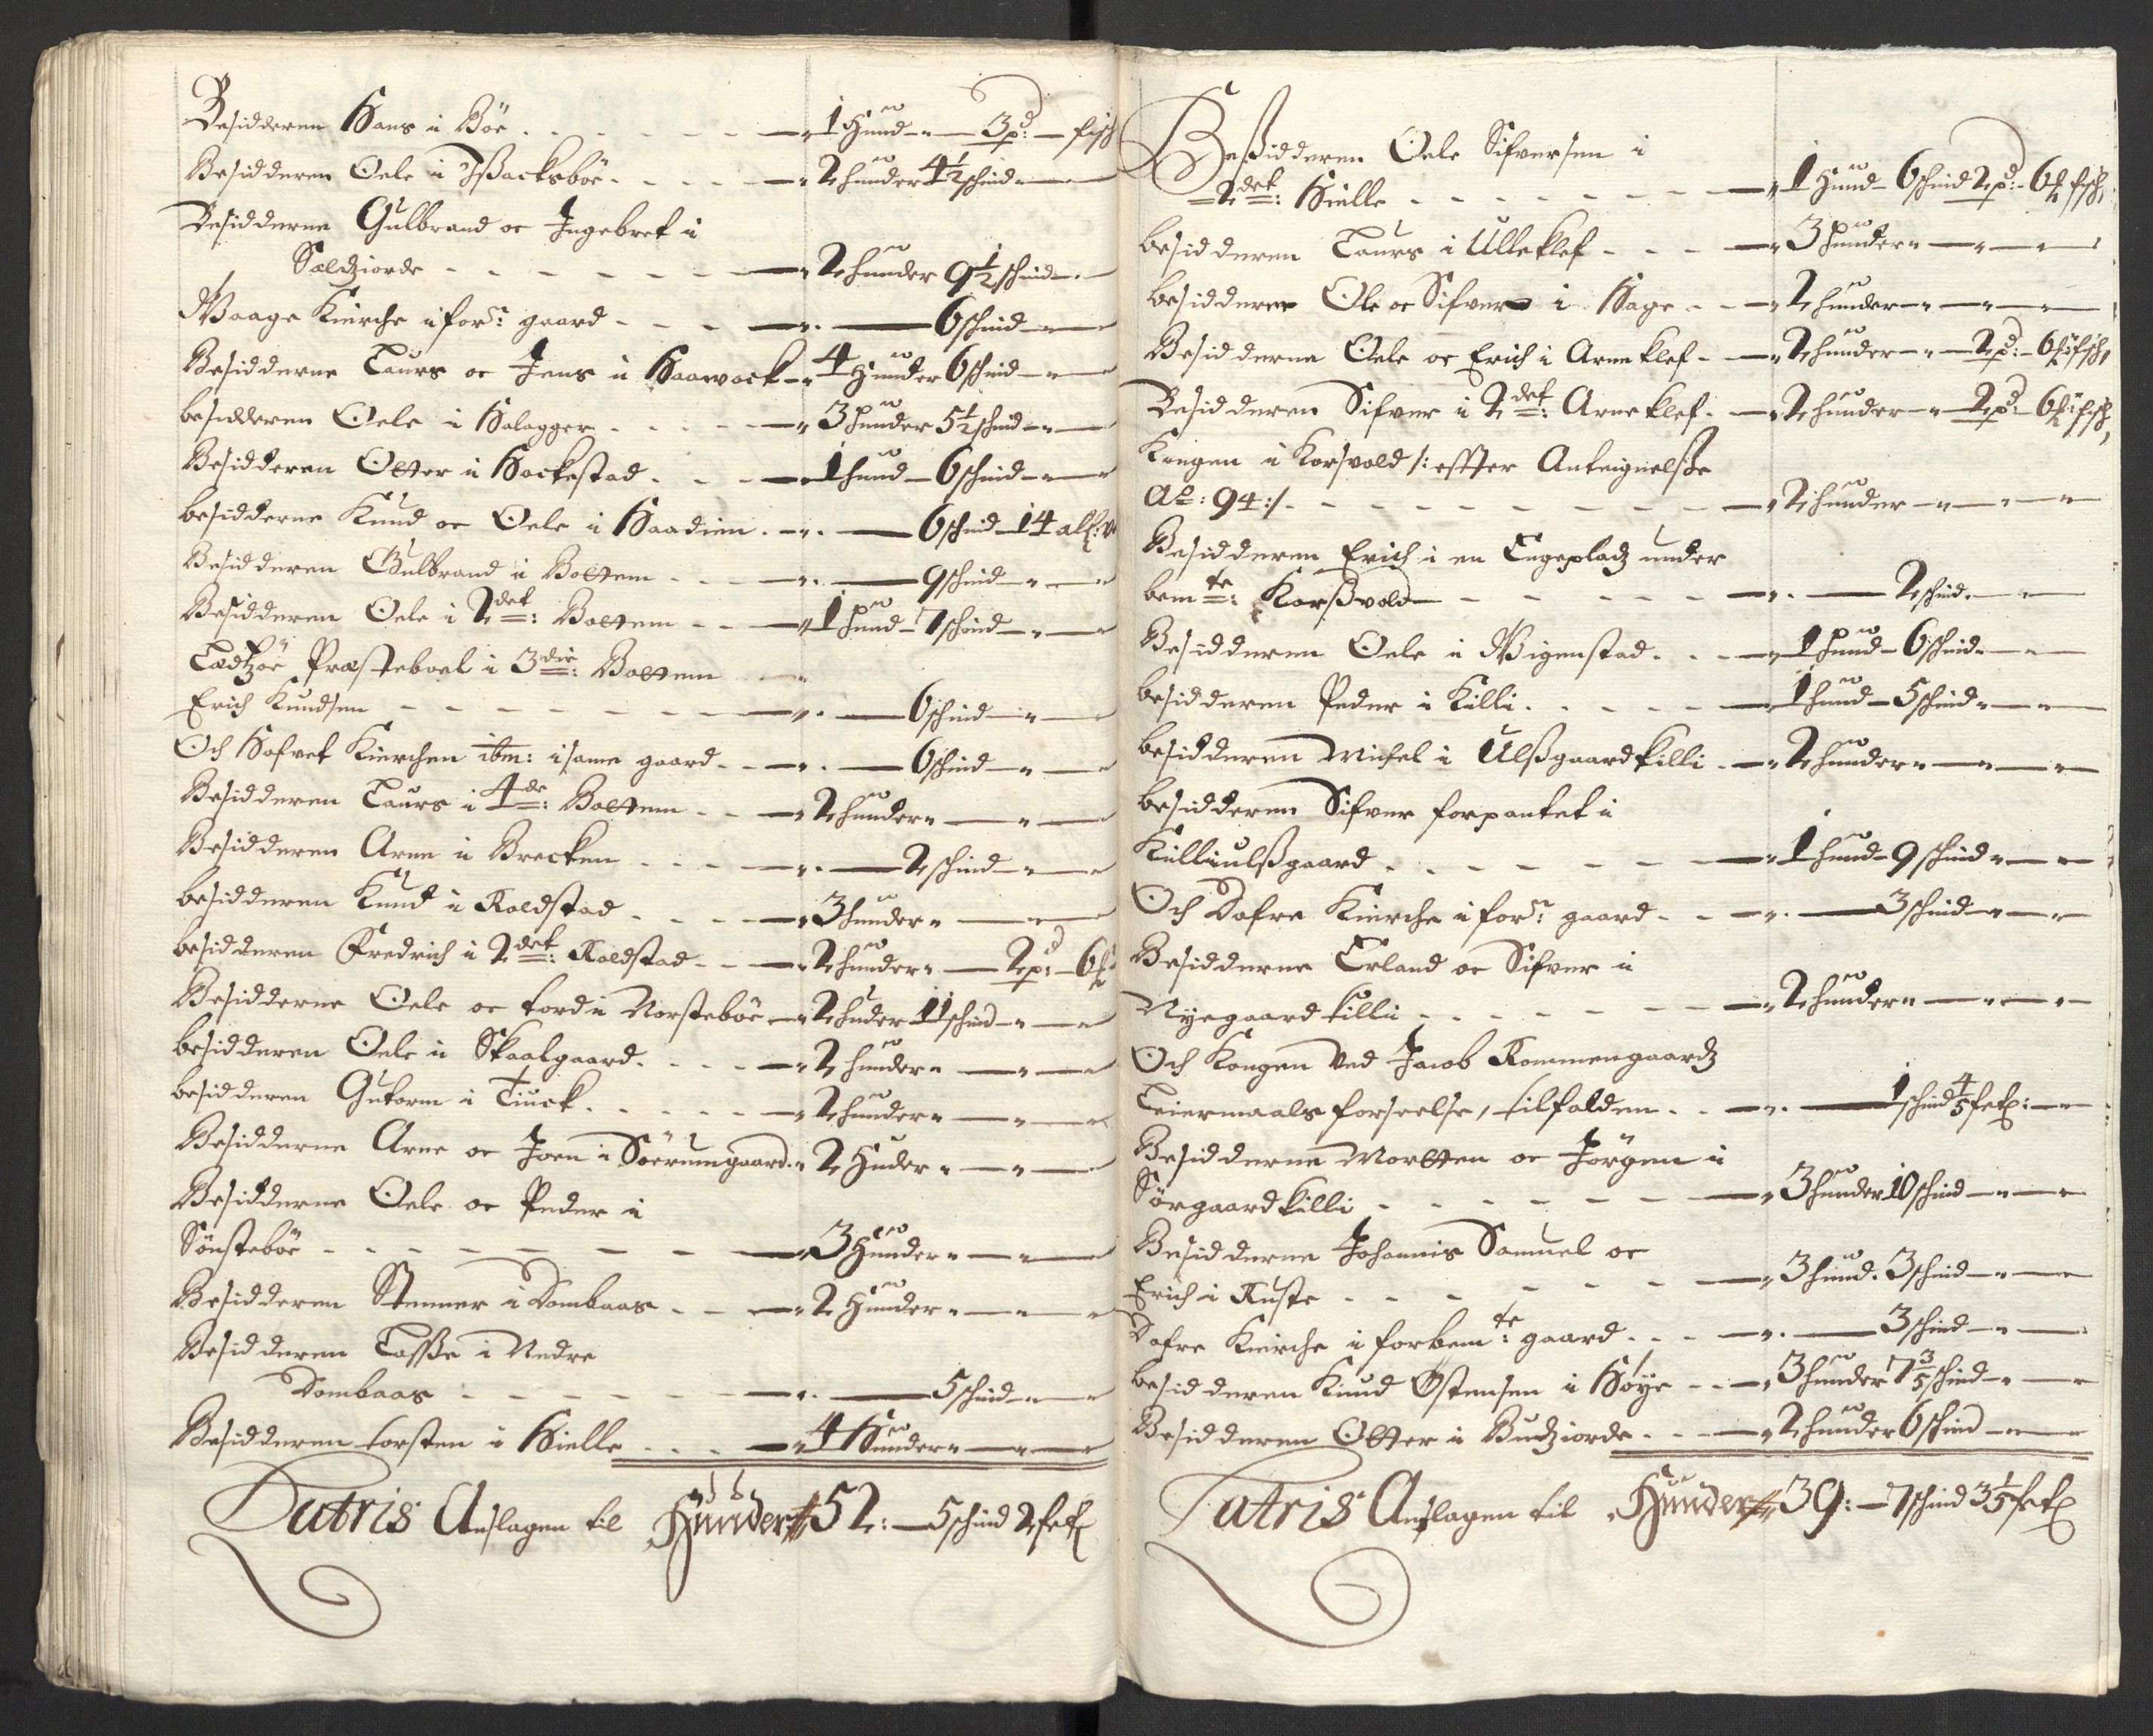 Besidderen Hans i Böe - - - - 1 Hund - 3 pd: - fisch
Besidderen Oele i Ißacksböe - - - - 2 hunder 4½ schind
Besidderne Gulbrand oc Ingebret i
Sældziorde - - - - 2 hunder 9½ schind
Waage Kirche i forn: gaard - - - - 6 schind
Besidderne Laurs oc Jens i Haawack - 4 Hunder 6 schind
besidderen Oele i Halagger - - - - 3 hunder 5½ schind
Besidderen Otter i Hockestad - - - - 1 hund - 6 schind
besidderne Knud oc Oele i Haadien - - 6 schind 14 alf:
Besidderen Gulbrand i Bottem - - - - 9 schind
Besidderen Oele i 2det: Bottem - - - 1 hund - 7 schind
Lædzöe Præsteboel i 3die: Bottem
Erich Knudsen - - - - 6 schind
Och Hofvet Kierchen ibm: i same gaard - - - 6 schind
Besidderen Laurs i 4de: Bottem - - - 2 hunder
Besidderen Arne i Brecken - - - - 2 schind
besidderen Knud i Roldstad - - - - 3 hunder
besidderen Fredrich i 2det: Roldstad - - - 2 hunder - 2 pd: - 6
Besidderne Oele oc tord i Norsteböe - 2 huder 11 schind
besidderen Oele i Skaalgaard - - - - 2 hunder
besidderen Gutorm i Tiuck - - - - 2 hunder
Besidderne Arne oc Joen i Söerumgaard - 2 Huder
Besidderne Oele oc Peder i
Sönsteböe - - - - 3 Hunder
Besidderen Stenner i Dombaas - - - 2 Hunder
Besidderen Laße i Nedre
Dombaas - - - - 5 schind
Besidderen torsten i Hielle - - - 4 Hunder
Latris Anslagen til Hunder 52: - 5 schind 2 fetl
Beßidderen Oele Sifversen i
2det: Hielle - - - - 1 Hund - 6 schind 2 pd: - 6 fisch
besidderen Laurs i Ulleklef - - - - 3 hunder
besidderne Ole oc Sifver i Hage - - - 2 hunder
Besidderne Oele oc Erich i Arneklef - - 2 hunder - 2 pd: - 6 fisch
Besidderen Sifver i 2det: Arneklef - - 2 hunder - 2 pd: - 6 fisch
Kongen i Korsvold /: effter Anteignelße
Ao: 94 :/ - - - - 2 hunder
Besidderen Erich i en Engepladz under
bemte: Korßvold - - - - 2 schind
Besidderen Oele i Wigenstad - - - 1 hund - 6 schind
besidderen Peder i Killi - - - - 1 hund - 5 schind
besidderen Michel i Ulßgaardkilli - - 2 hunder
besidderen Sifver forpantet i
Killiulßgaard - - - - 1 hund - 9 schind
Och Dofre Kierche i forn: gaard - - - 3 schind
Besidderne Erland oc Sifver i
Nyegaard killi - - - - 2 hunder
Och Kongen ved Jacob Rommengaardz
Leiermaals forseelse, tilfalden - - - 1 schind 4/5 fetl:
Besidderne Mortten oc Jörgen i
Sörgaardkilli - - - - 3 hunder 10 schind
Besidderne Johannis Samuel oc
Erich i Ruste - - - - 3 hund. 3 schind
Dofre Kierche i forbemte: gaard - - - 3 schind
besidderen Knud Ostensen i Höye - - - 3 hunder 7 3/5 schind
Besidderen Otter i Budziorde - - - 2 hunder 6 schind
Latris Anslagen til Hunder 39: - 7 schind 3 1/5 fetl